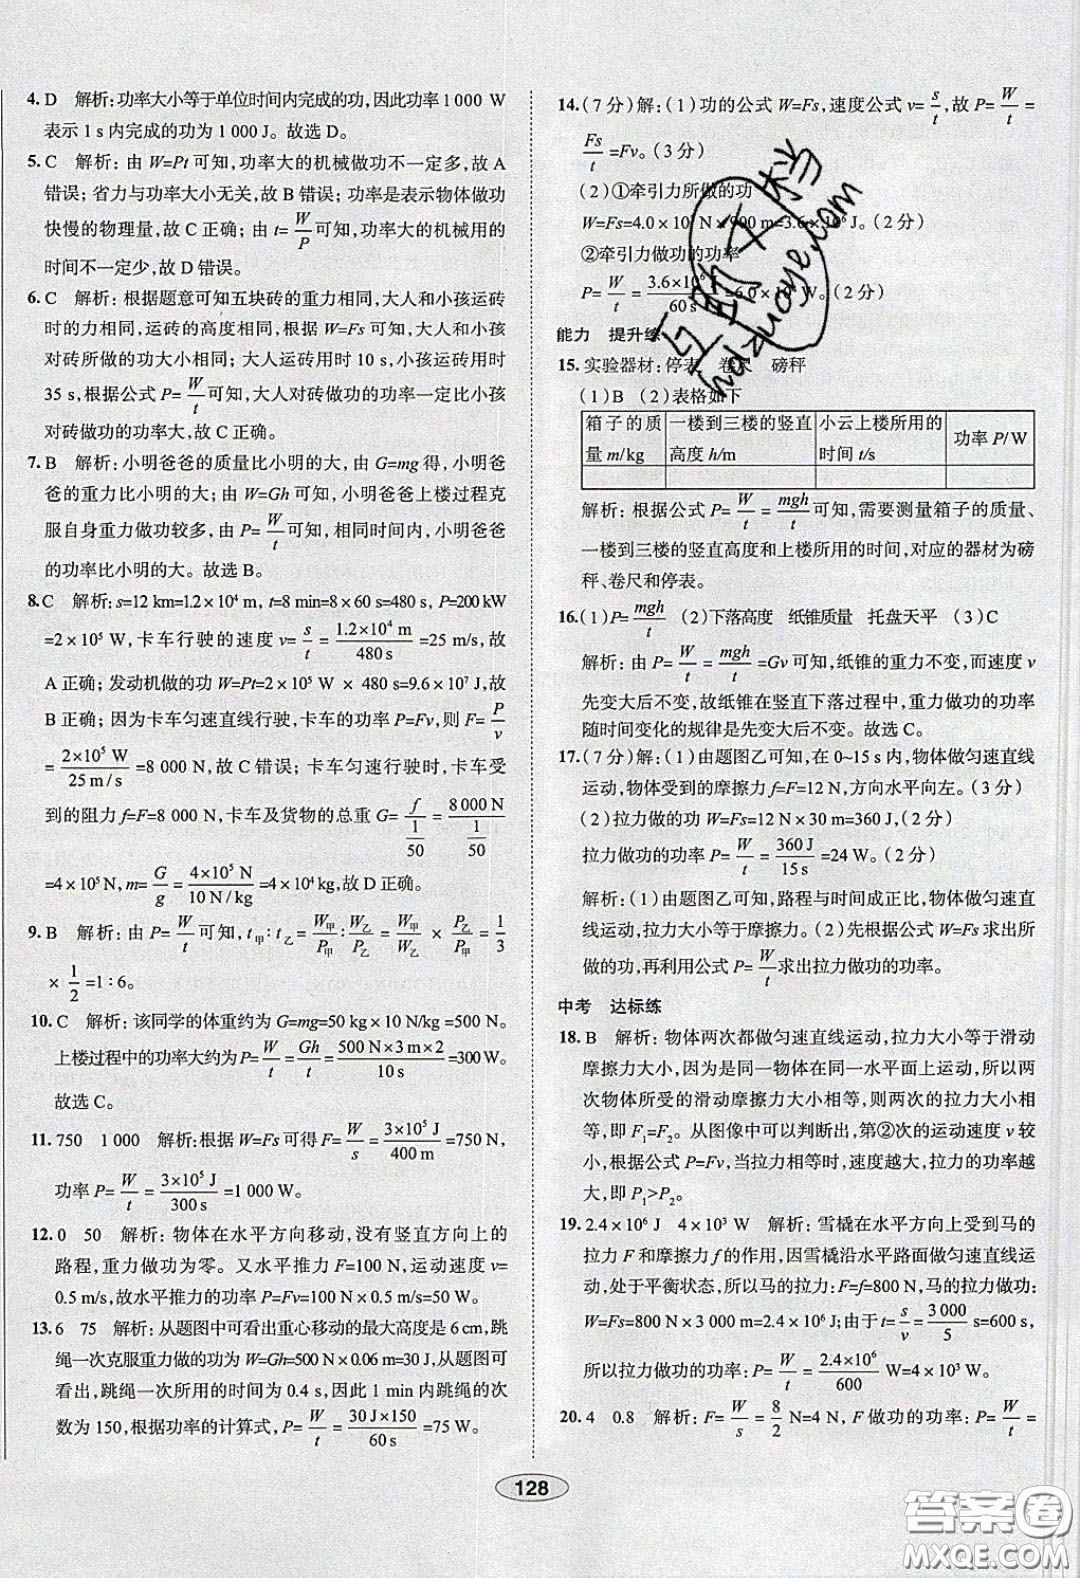 4. D 解析:功率大小等于单位时间内完成的功,因此功率1 000 W
表示 1 s 内完成的功为 1 000 J。故选 D。
5. C 解析:由 W=Pt 可知,功率大的机械做功不一定多,故 A
错误;省力与功率大小无关,故 B 错误;功率是表示物体做功
快慢的物理量,故 C 正确;由 t=W/P 可知,功率大的机械用的
时间不一定少,故 D 错误。
6. C 解析:根据题意可知五块砖的重力相同,大人和小孩运砖
时的力相同,运砖的高度相同,根据 W=Fs 可知,大人和小孩
对砖所做的功大小相同;大人运砖用时 10 s,小孩运砖用时
35 s,根据公式 P=W/t 可知,大人对砖做功的功率一定比小孩
对砖做功的功率大,故 C 正确。
7. B 解析:小明爸爸的质量比小明的大,由 G=mg 得,小明爸
爸的重力比小明的大;由 W=Gh 可知,小明爸爸上楼过程克
服自身重力做功较多,由 P=W/t 可知,相同时间内,小明爸爸
的功率比小明的大。故选 B。
8. C 解析:s=12 km=1.2×10⁴ m,t=8 min=8×60 s=480 s,P=200 kW
=2×10⁵ W,卡车行驶的速度 v=s/t=1.2×10⁴ m/480 s=25 m/s,故
A 正确;发动机做的功 W=Pt=2×10⁵ W × 480 s=9.6×10⁷ J,故
B 正确;因为卡车匀速直线行驶,卡车的功率 P=Fv,则 F=P/v
=2×10⁵ W/25 m/s=8 000 N,故 C 错误;卡车匀速行驶时,卡车受
到的阻力 f=F=8 000 N,卡车及货物的总重 G=f/(1/50)=8 000 N/(1/50)
=4×10⁵ N,m=G/g=4×10⁵ N/10 N/kg=4×10⁴ kg,故 D 正确。
9. B 解析:由 P=W/t 可知,t甲∶t乙=W甲/P甲∶W乙/P乙=W甲/W乙×P乙/P甲=1/3
×1/2=1∶6。
10. C 解析:该同学的体重约为 G=mg=50 kg×10 N/kg=500 N。
上楼过程中的功率大约为 P=W/t=Gh/t=500 N×3 m×2/10 s=300 W。
故选 C。
11. 750 1 000 解析:根据 W=Fs 可得 F=W/s=3×10⁵ J/400 m=750 N,
功率 P=W/t=3×10⁵ J/300 s=1 000 W。
12. 0 50 解析:物体在水平方向移动,没有竖直方向上的
路程,重力做功为零。又水平推力 F=100 N,运动速度 v=
0.5 m/s,故水平推力的功率 P=Fv=100 N×0.5 m/s=50 W。
13. 6 75 解析:从题图中可看出重心移动的最大高度是 6 cm,跳
绳一次克服重力做的功为 W=Gh=500 N×0.06 m=30 J,从题图可
看出,跳绳一次所用的时间为 0.4 s,因此 1 min 内跳绳的次
数为 150,根据功率的计算式,P=W/t=30 J×150/60 s=75 W。
14. (7 分)解:(1)功的公式 W=Fs,速度公式 v=s/t,故 P=W/t=
Fs/t=Fv。(3 分)
(2)①牵引力所做的功
W=Fs=4.0×10 N×900 m=3.6×10⁶ J。(2 分)
②牵引力做功的功率
P=W/t=3.6×10⁶ J/60 s=6.0×10 W。(2 分)
能力 提升练
15. 实验器材:停表 卷尺 磅秤
(1)B (2)表格如下
箱子的质量 m/kg 一楼到三楼的竖直高度 h/m 小云上楼所用的时间 t/s 功率 P/W
解析:根据公式 P=W/t=mgh/t 可知,需要测量箱子的质量、
一楼到三楼的竖直高度和上楼所用的时间,对应的器材为磅
秤、卷尺和停表。
16. (1)P=mgh/t (2)下落高度 纸锥质量 托盘天平 (3)C
解析:由 P=W/t=mgh/t=Gv 可知,纸锥的重力不变,而速度 v
先变大后不变,故纸锥在竖直下落过程中,重力做功的功率
随时间变化的规律是先变大后不变。故选 C。
17. (7 分)解:(1)由题图乙可知,在 0~15 s 内,物体做匀速直线
运动,物体受到的摩擦力 f=F=12 N,方向水平向左。(3 分)
(2)拉力做的功 W=Fs=12 N×30 m=360 J,(2 分)
拉力做功的功率 P=W/t=360 J/15 s=24 W。(2 分)
解析:(1)由题图乙可知,路程与时间成正比,物体做匀速直
线运动,拉力大小等于摩擦力。(2)先根据公式 W=Fs 求出所
做的功,再利用公式 P=W/t 求出拉力做功的功率。
中考 达标练
18. B 解析:物体两次都做匀速直线运动,拉力大小等于滑动
摩擦力大小,因为是同一物体在同一水平面上运动,所以两
次物体所受的滑动摩擦力大小相等,则两次的拉力大小相
等,即 F₁=F₂。从图像中可以判断出,第②次的运动速度 v 较
小,根据公式 P=Fv,当拉力相等时,速度越大,拉力的功率越
大,即 P₁>P₂。
19. 2.4×10⁶ J 4×10³ W 解析:雪橇在水平方向上受到马的
拉力 F 和摩擦力 f 的作用,因雪橇沿水平路面做匀速直线运
动,处于平衡状态,所以马的拉力:F=f=800 N,马的拉力做功:
W=Fs=800 N×3 000 m=2.4×10⁶ J;由于 t=s/v=3 000/5 s=600 s,
所以拉力做功的功率:P=W/t=2.4×10⁶/600 W=4×10³ W。
20. 4 0.8 解析:F=W/s=8/2 N=4 N,F 做功的功率:P=W/t=
128
答案圈
MXQE.COM